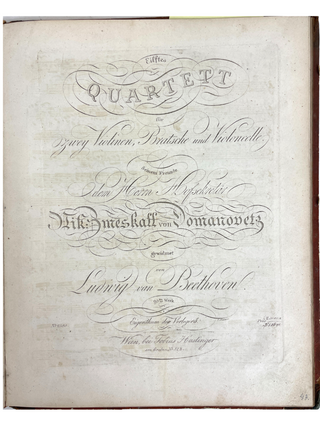 Eilftes
QUARTETT
für
zwey Violinen, Bratsche und Violoncelle,
seinem Freunde
dem Herrn Hofsekretär
Nik: Zmeskall von Domanovetz
gewidmet
von
Ludwig van Beethoven.
95tes Werk
Eigenthum der Verleger.
Wien, bei Tobias Haslinger